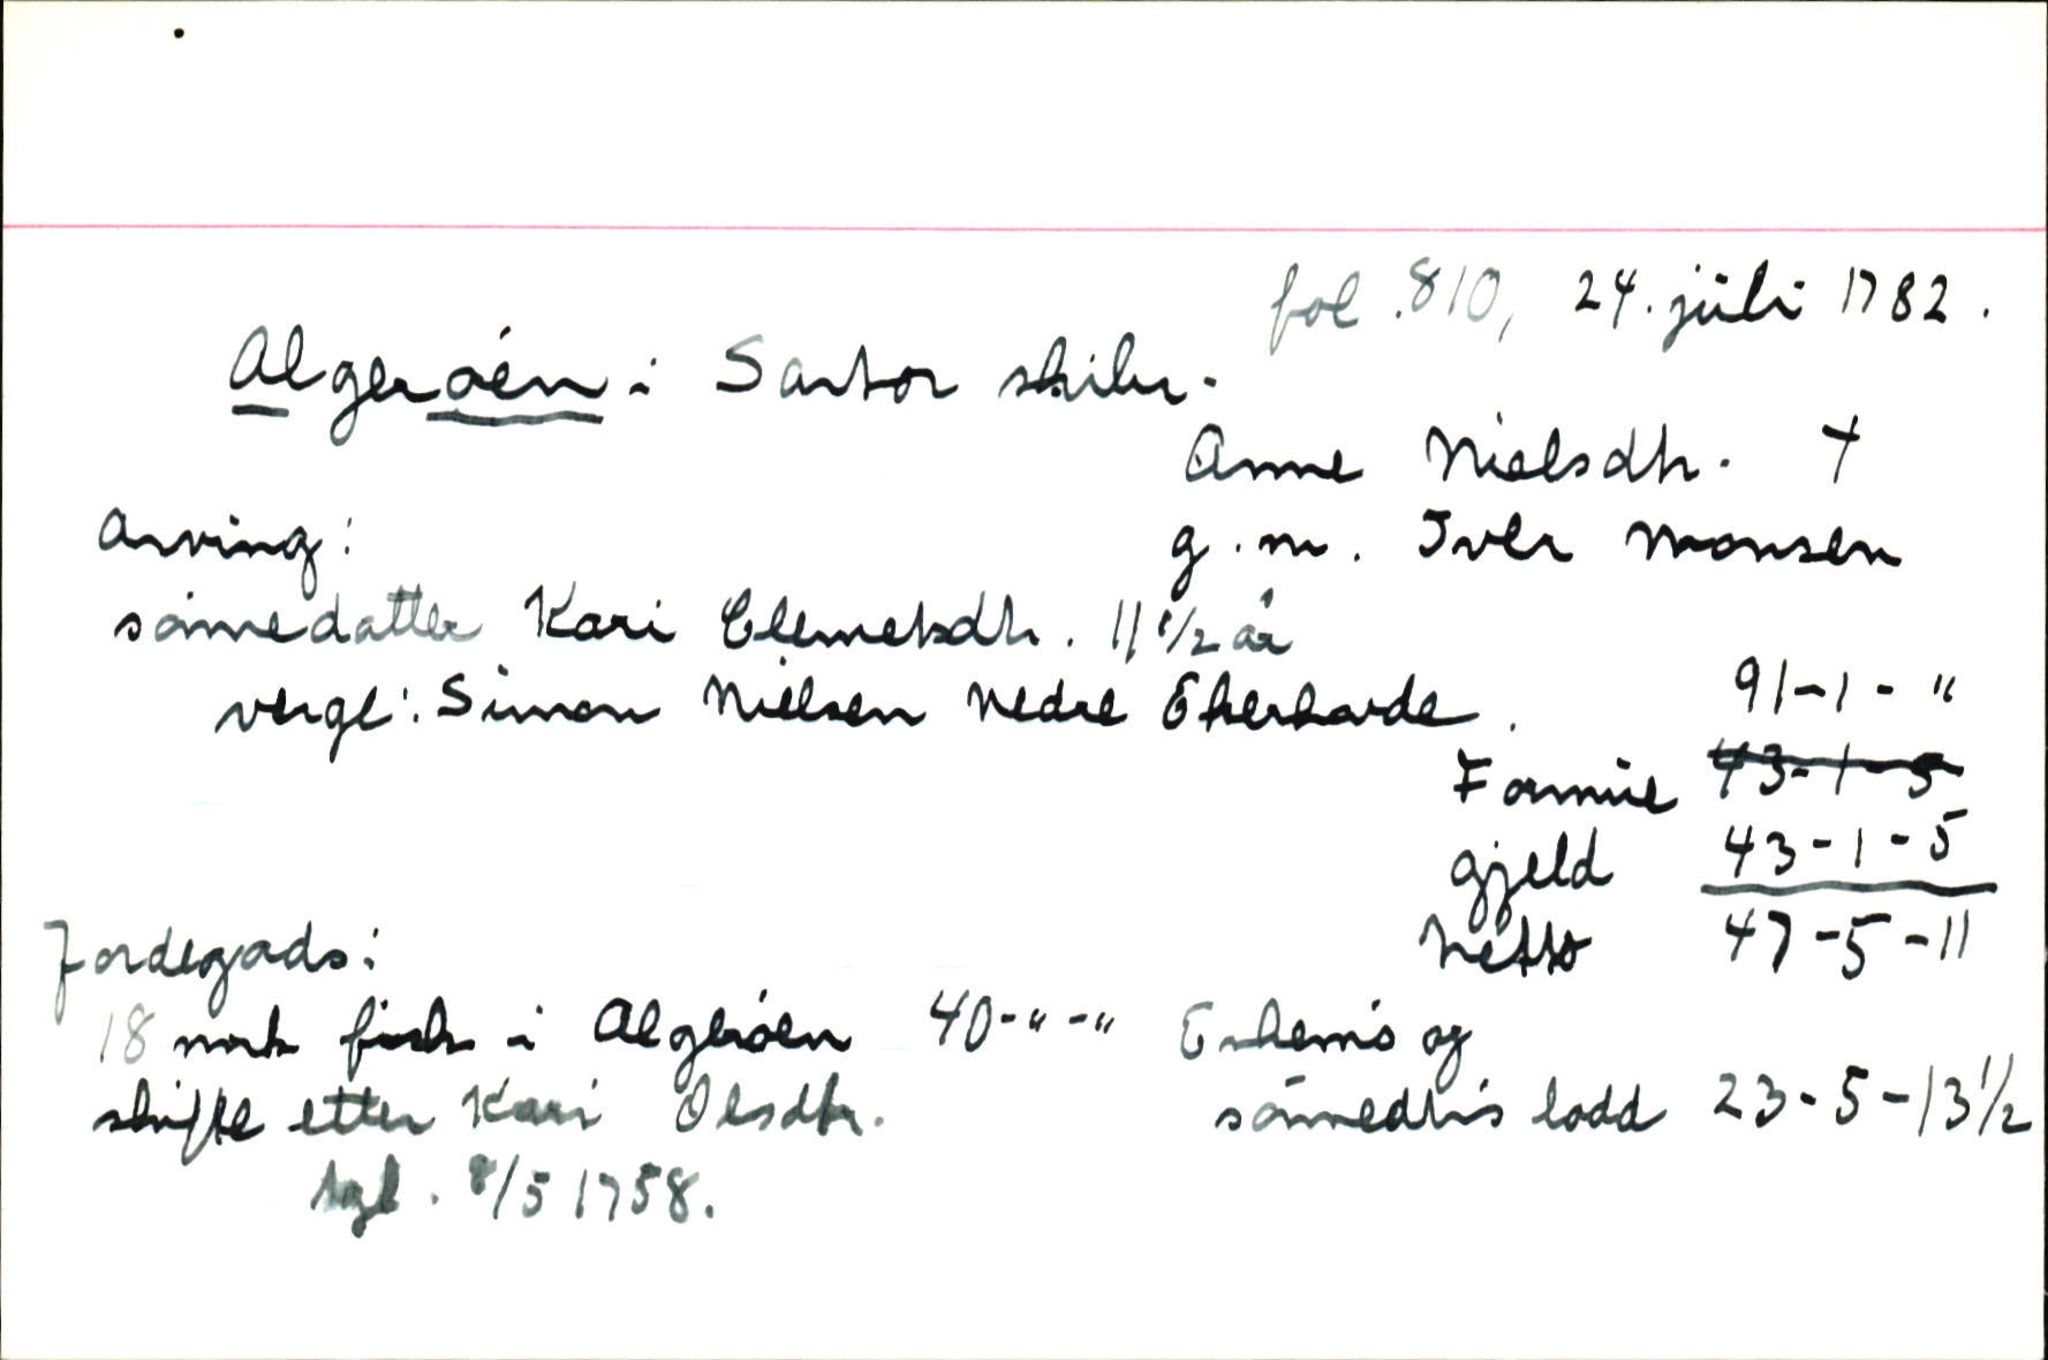 fol. 810, 24. juli 1782.
Algerøen i Sartor skibr.
Anne Nielsdtr. †
Arving:
g.m. Iver Monsen
sønnedatter Kari Clemetsdtr. 11 1/2 år
verge: Simon Nielsen Nedre Ekerhovde.
91-1-"
Formue 43-1-5
gjeld 43-1-5
Netto 47-5-11
Jordegods:
18 mrk fisk i Algerøen 40-"-" Enkem's og
skifte etter Kari Olsdtr. sønnedtr's lodd 23-5-13 1/2
tgl. 8/5 1758.